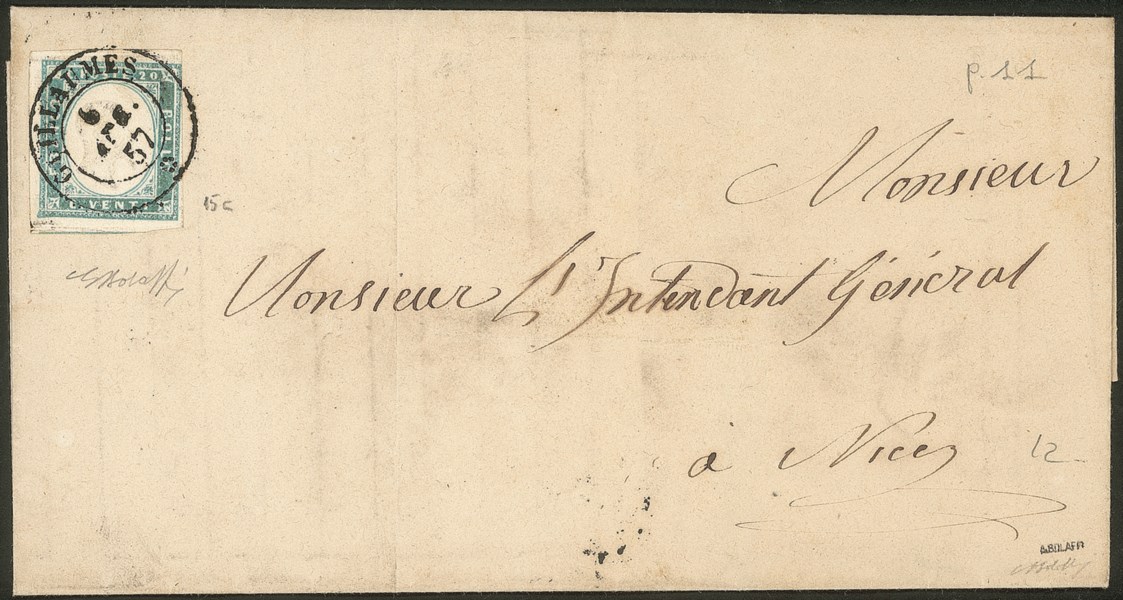 GUILLAUMES
6
APR.
57
20
BOLLO
C. VENTI
15c
p. 11
Monsieur
Monsieur L'Intendant Général
à Nice
12
A.BOLAFFI